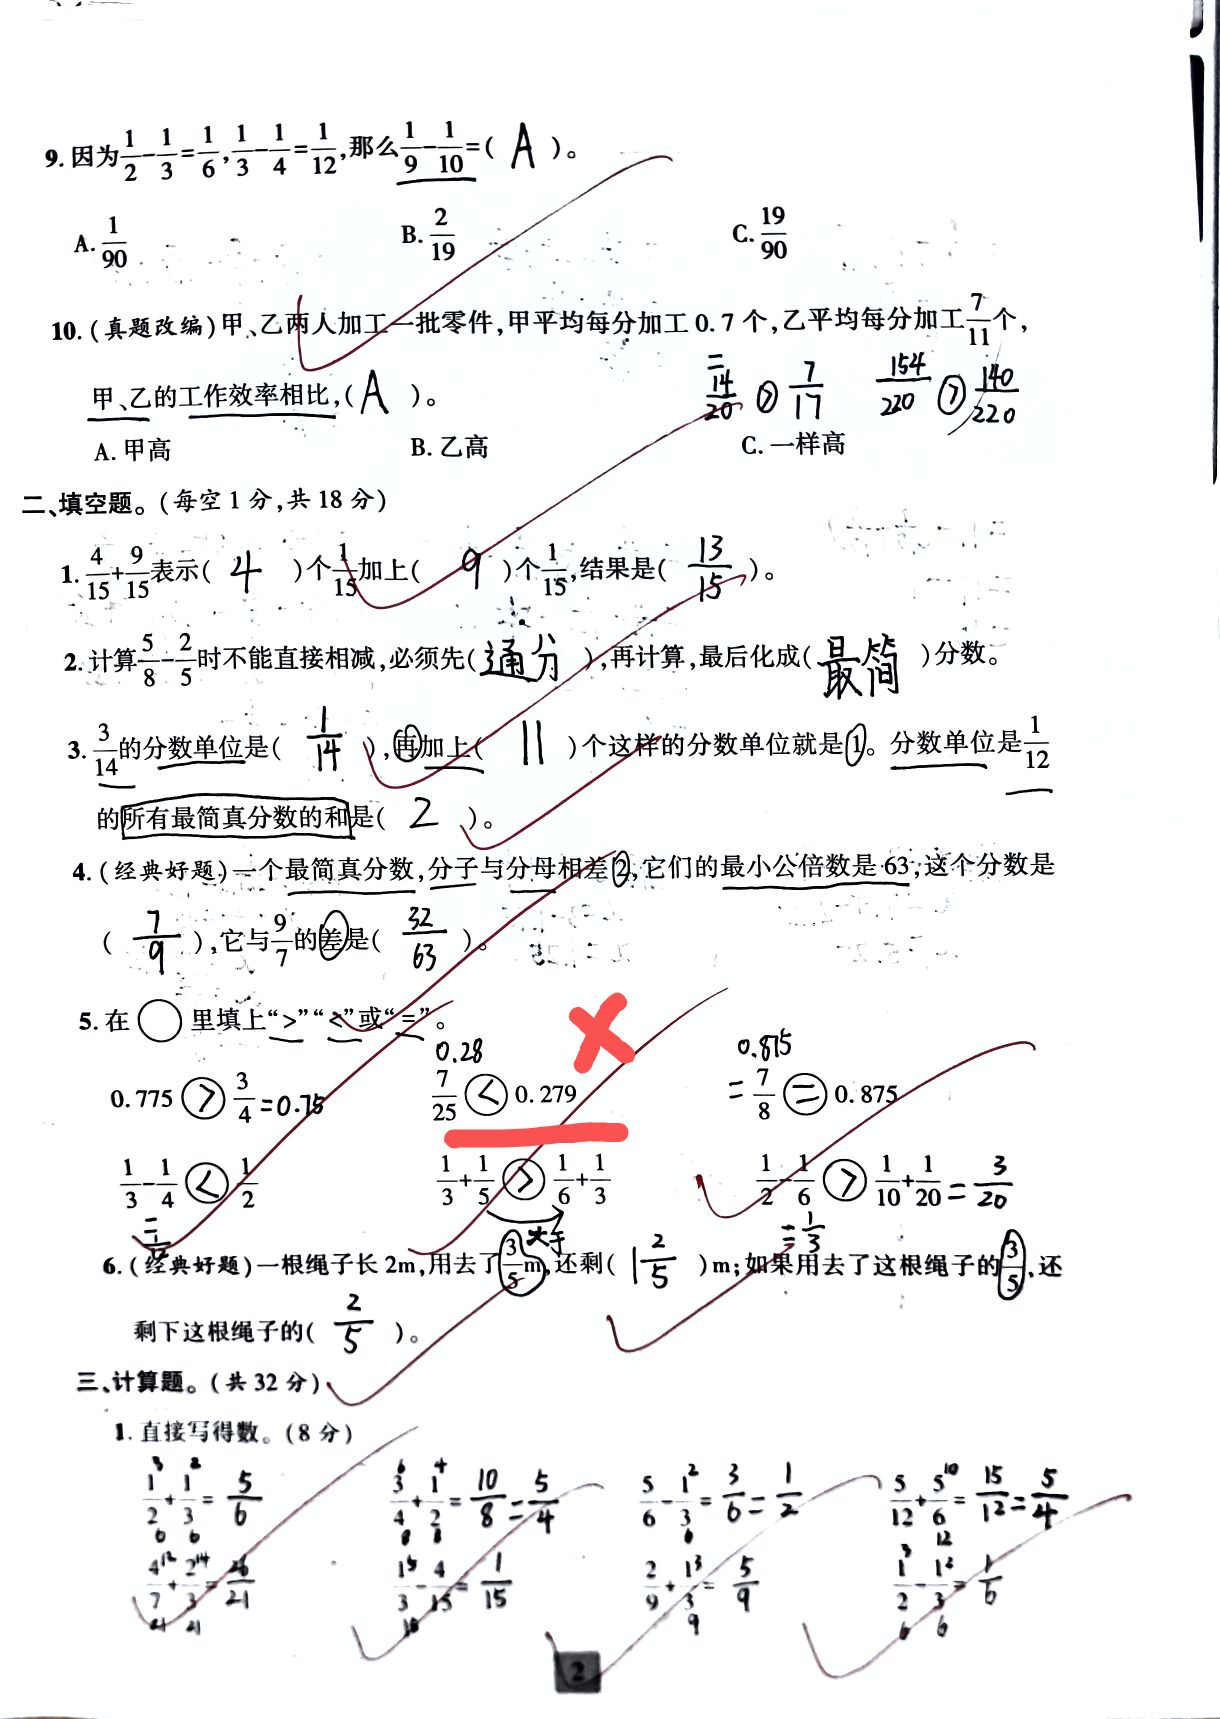 9. 因为1/2-1/3=1/6,1/3-1/4=1/12,那么1/9-1/10=( A )。
A. 1/90 B. 2/19 C. 19/90
10. (真题改编)甲、乙两人加工一批零件,甲平均每分加工0.7个,乙平均每分加工7/11个,
= 14/20 > 7/17 154/220 > 140/220
甲、乙的工作效率相比,( A )。
A. 甲高 B. 乙高 C. 一样高
二、填空题。(每空1分,共18分)
1. 4/15+9/15表示( 4 )个1/15加上( 9 )个1/15,结果是( 13/15 )。
2. 计算5/8-2/5时不能直接相减,必须先( 通分 ),再计算,最后化成( 最简 )分数。
3. 3/14的分数单位是( 1/14 ),再加上( 11 )个这样的分数单位就是1。分数单位是1/12
的所有最简真分数的和是( 2 )。
4. (经典好题)一个最简真分数,分子与分母相差2,它们的最小公倍数是63,这个分数是
( 7/9 ),它与9/7的差是( 32/63 )。
5. 在○里填上“>”“<”或“=”。
0.28 0.875
0.775 > 3/4 =0.75 7/25 < 0.279 = 7/8 = 0.875
1/3-1/4 < 1/2 1/3+1/5 > 1/6+1/3 1/2-1/6 > 1/10+1/20 = 3/20
= 1/12 大于 = 1/3
6. (经典好题)一根绳子长2m,用去了3/5m,还剩( 1 2/5 )m;如果用去了这根绳子的3/5,还
剩下这根绳子的( 2/5 )。
三、计算题。(共32分)
1. 直接写得数。(8分)
1/2+1/3= 5/6 3/4+1/2= 10/8 = 5/4 5/6-1/3= 3/6 = 1/2 5/12+5/6= 15/12 = 5/4
4/7+2/3= 26/21 1/3-4/15= 1/15 2/9+1/3= 5/9 1/2-1/3= 1/6
2